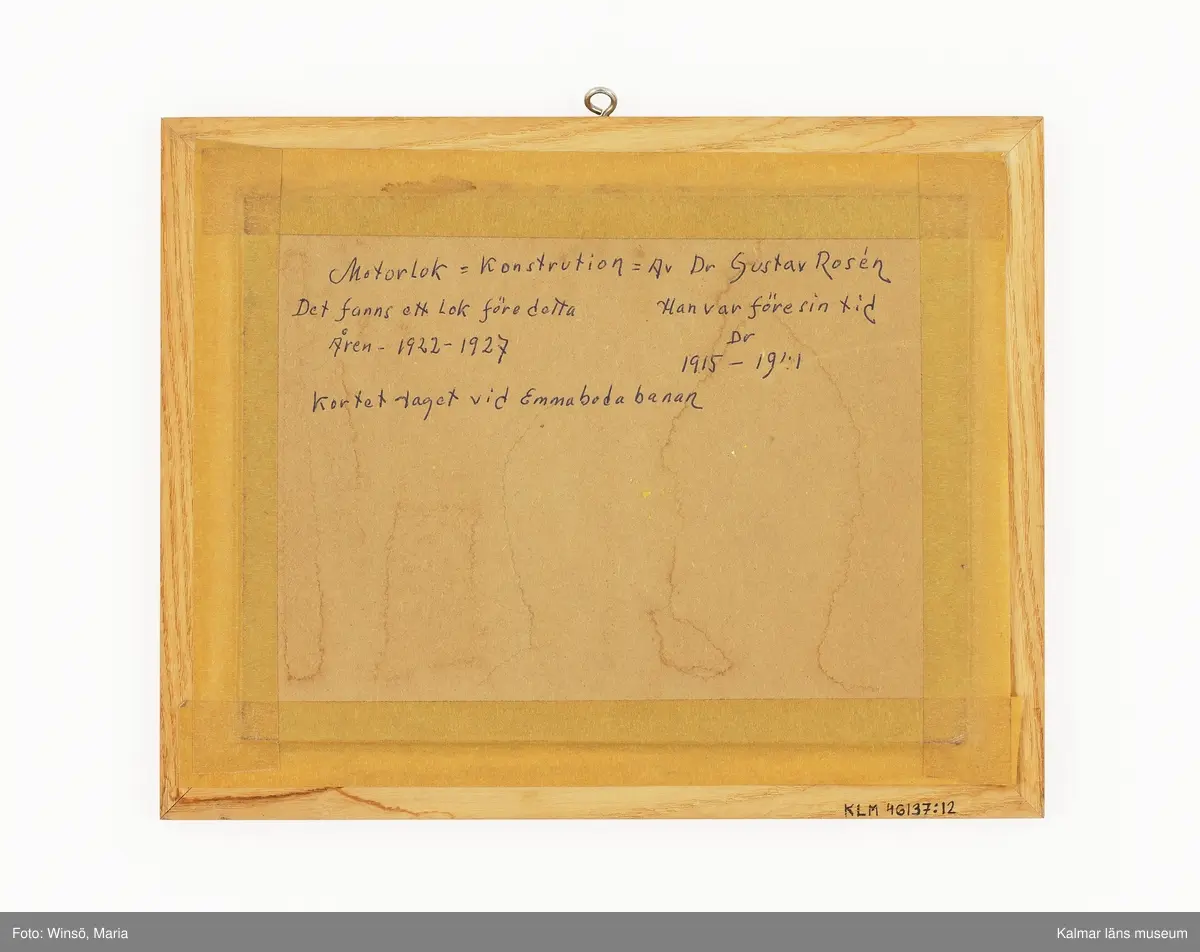 Motorlok = Konstrution = Av Dr Gustav Rosén
Det fanns ett Lok före detta
Åren - 1922 - 1927
Han var före sin tid
Dr
1915 –
Kortet taget vid Emmaboda banan
KLM 46137:12
Foto: Winsö, Maria
Kalmar läns museum